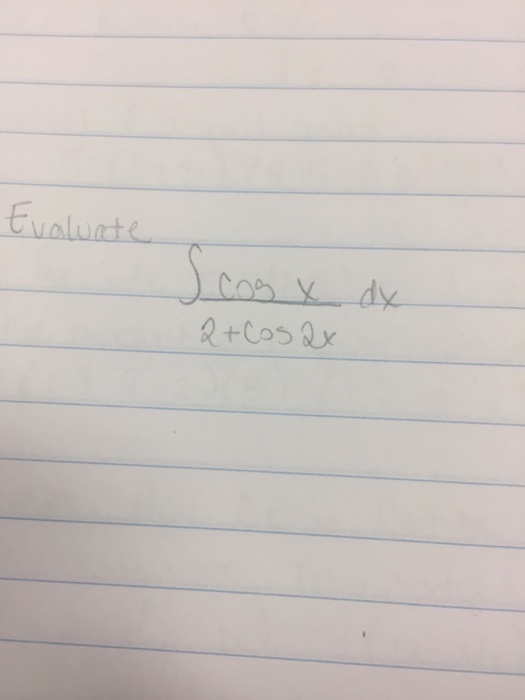 Evaluate
∫ cos x dx
2+cos 2x